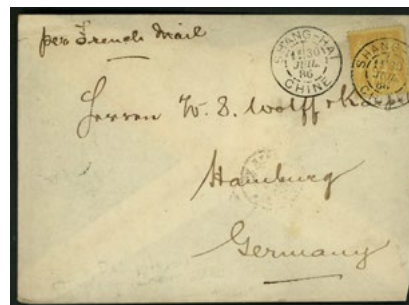 per French Mail
SHANG-HAI
1 1E 30 1
JUIL.
86
CHINE
SHANG
Herren W. S. Wolff &
Hamburg
Germany